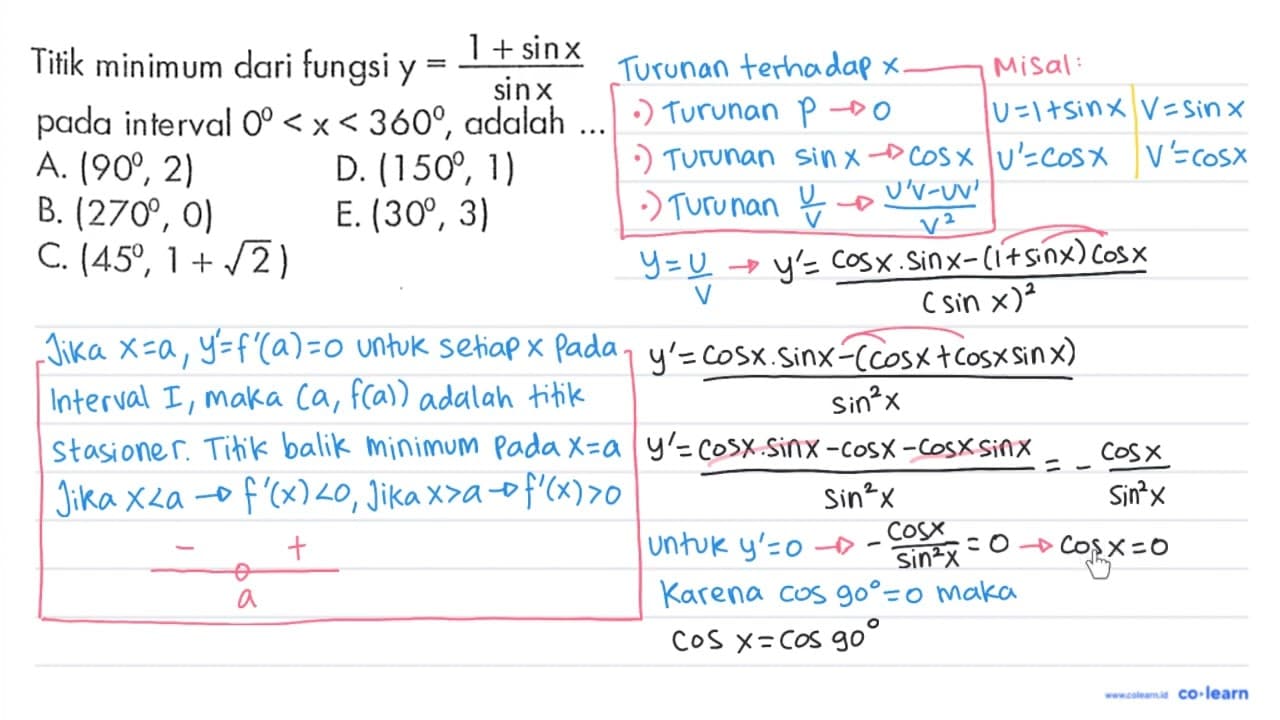 Titik minimum dari fungsi y = (1 + sin x)/(sin x)
pada interval 0° < x < 360°, adalah ...
A. (90°, 2)
D. (150°, 1)
B. (270°, 0)
E. (30°, 3)
C. (45°, 1 + √2)
Turunan terhadap x
•) Turunan p → 0
•) Turunan sin x → cos x
•) Turunan U/V → (U'V-UV')/V²
Misal:
U=1+sin x | V=sin x
U'=cos x | V'=cos x
y=U/V → y'= (cos x . sin x-(1+sin x) cos x)/(sin x)²
y'= (cos x . sin x-(cos x+cos x sin x))/sin²x
y'= (cos x . sin x-cos x-cos x sin x)/sin²x = - cos x/sin²x
untuk y'=0 → - cos x/sin²x = 0 → cos x=0
Karena cos 90°=0 maka
cos x=cos 90°
Jika x=a, y'=f'(a)=0 untuk setiap x pada
Interval I, maka (a, f(a)) adalah titik
stasioner. Titik balik minimum pada x=a
Jika x<a → f'(x)<0, Jika x>a → f'(x)>0
- +
a
www.colearn.id co·learn